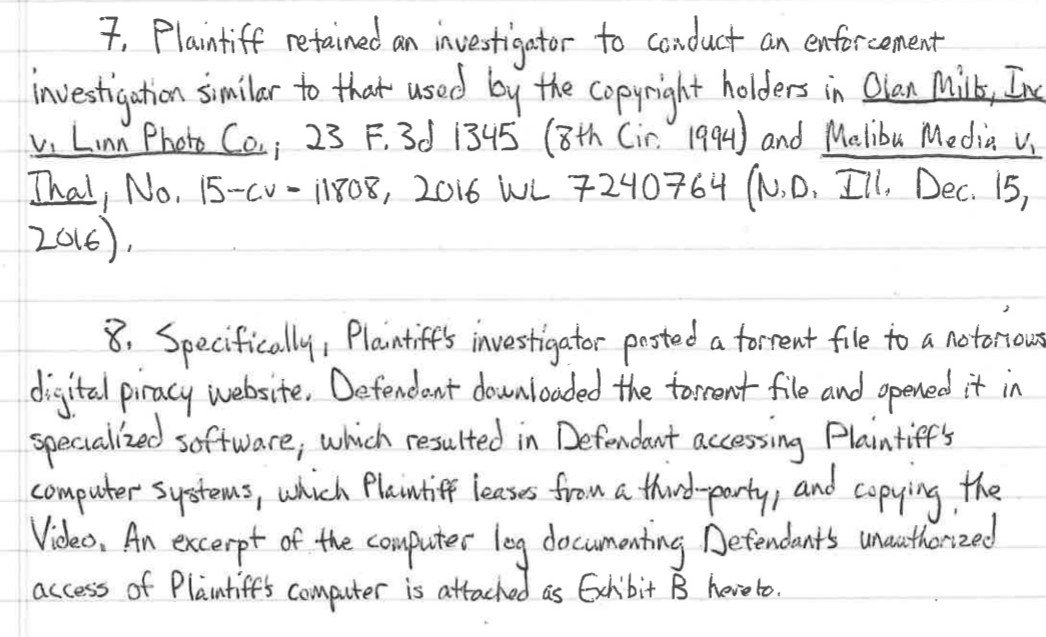 7. Plaintiff retained an investigator to conduct an enforcement
investigation similar to that used by the copyright holders in Olan Mills, Inc
v. Linn Photo Co., 23 F.3d 1345 (8th Cir. 1994) and Malibu Media v.
Thal, No. 15-cv-11808, 2016 WL 7240764 (N.D. Ill. Dec. 15,
2016).
8. Specifically, Plaintiff's investigator posted a torrent file to a notorious
digital piracy website. Defendant downloaded the torrent file and opened it in
specialized software, which resulted in Defendant accessing Plaintiff's
computer systems, which Plaintiff leases from a third-party, and copying the
Video. An excerpt of the computer log documenting Defendant's unauthorized
access of Plaintiff's computer is attached as Exhibit B hereto.